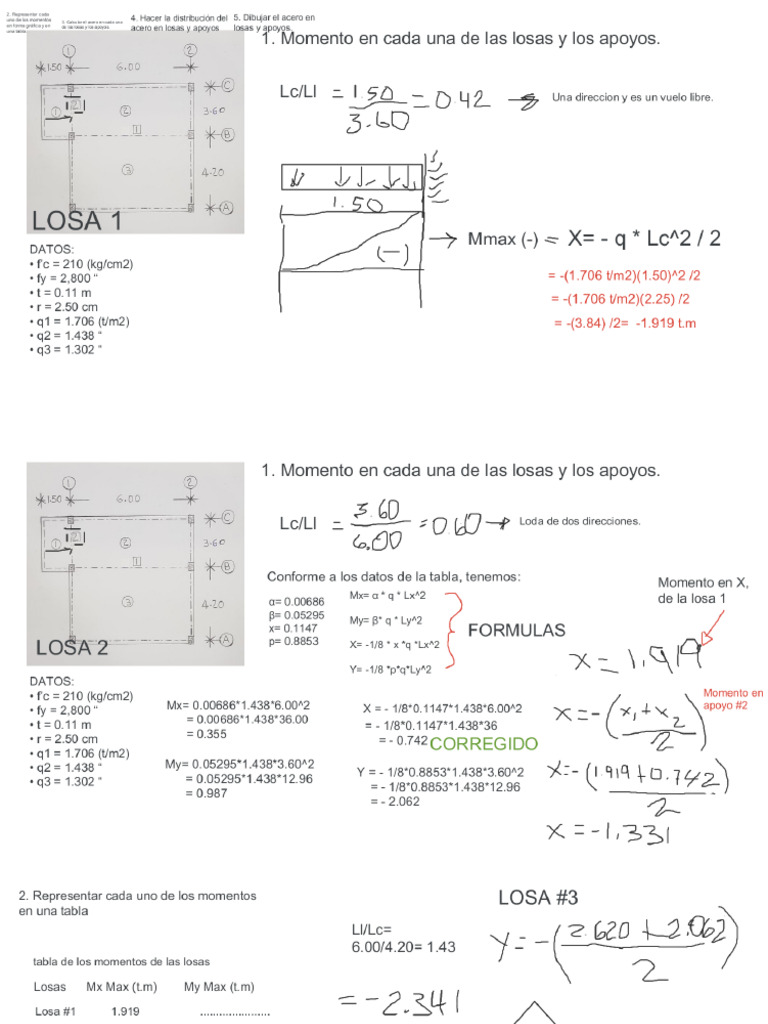 2. Representar cada
uno de los momentos
en forma gráfica y en
una tabla.
4. Hacer la distribución del
acero en losas y apoyos
5. Dibujar el acero en
losas y apoyos.
1 2
1.50 6.00
C
3.60
B
4.20
A
1 2 2
1
3
LOSA 1
DATOS:
• f'c = 210 (kg/cm2)
• fy = 2,800 "
• t = 0.11 m
• r = 2.50 cm
• q1 = 1.706 (t/m2)
• q2 = 1.438 "
• q3 = 1.302 "
1. Momento en cada una de las losas y los apoyos.
Lc/Ll = 1.50 / 3.60 = 0.42
Una direccion y es un vuelo libre.
1.50
(—)
Mmax (-) = X= - q * Lc^2 / 2
= -(1.706 t/m2)(1.50)^2 /2
= -(1.706 t/m2)(2.25) /2
= -(3.84) /2= -1.919 t.m
1 2
1.50 6.00
C
3.60
B
4.20
A
1 2 2
1
3
LOSA 2
DATOS:
• f'c = 210 (kg/cm2)
• fy = 2,800 "
• t = 0.11 m
• r = 2.50 cm
• q1 = 1.706 (t/m2)
• q2 = 1.438 "
• q3 = 1.302 "
1. Momento en cada una de las losas y los apoyos.
Lc/Ll = 3.60 / 6.00 = 0.60
Loda de dos direcciones.
Conforme a los datos de la tabla, tenemos:
α= 0.00686
β= 0.05295
x= 0.1147
p= 0.8853
Mx= α * q * Lx^2
My= β* q * Ly^2
X= -1/8 * x *q *Lx^2
Y= -1/8 *p*q*Ly^2
FORMULAS
Momento en X,
de la losa 1
x = 1.919
Mx= 0.00686*1.438*6.00^2
= 0.00686*1.438*36.00
= 0.355
My= 0.05295*1.438*3.60^2
= 0.05295*1.438*12.96
= 0.987
X = - 1/8*0.1147*1.438*6.00^2
= - 1/8*0.1147*1.438*36
= - 0.742
CORREGIDO
Y = - 1/8*0.8853*1.438*3.60^2
= - 1/8*0.8853*1.438*12.96
= - 2.062
Momento en
apoyo #2
x = -(x1 + x2 / 2)
x = -(1.919 + 0.742) / 2
x = -1.331
2. Representar cada uno de los momentos
en una tabla
tabla de los momentos de las losas
Losas Mx Max (t.m) My Max (t.m)
Losa #1 1.919 ......................
LOSA #3
Ll/Lc=
6.00/4.20= 1.43
Y = -(2.620 + 2.062 / 2)
= -2.341